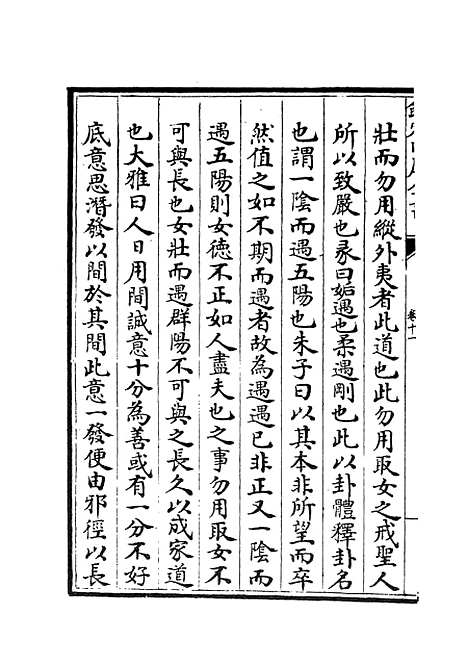 壯而勿用縱外夷者此道也此勿用取女之戒聖人
所以致嚴也彖曰姤遇也柔遇剛也此以卦體釋卦名
也謂一陰而遇五陽也朱子曰以其本非所望而卒
然值之如不期而遇者故為遇遇已非正又一陰而
遇五陽則女德不正如人盡夫也之事勿用取女不
可與長也女壯而遇群陽不可與之長久以成家道
也大雅曰人日用間誠意十分為善或有一分不好
底意思潛發以間於其間此意一發便由邪徑以長
卷十一